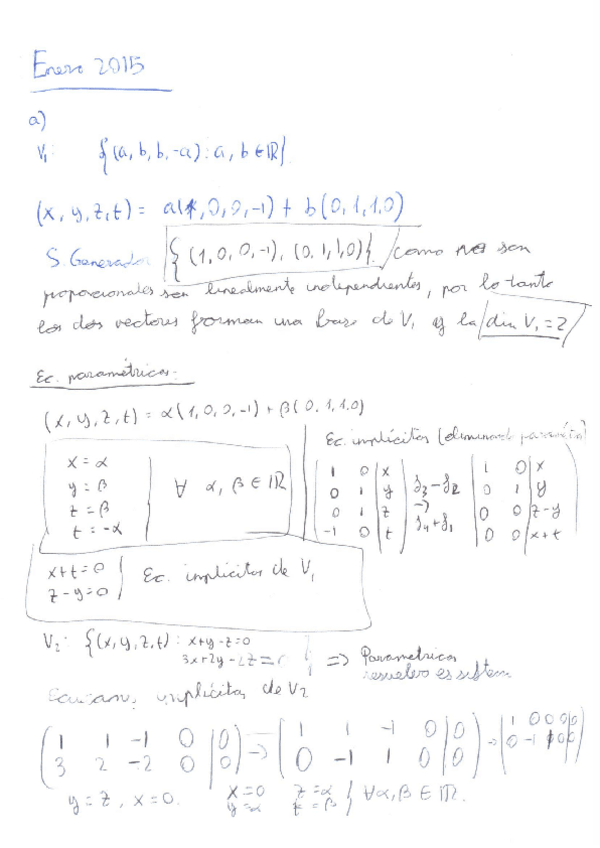 Enero 2015
a)
V₁: {(a, b, b, -a) : a, b ∈ ℝ}
(x, y, z, t) = a(1, 0, 0, -1) + b(0, 1, 1, 0)
S. Generador {(1, 0, 0, -1), (0, 1, 1, 0)} como no son
proporcionales son linealmente independientes, por lo tanto
los dos vectores forman una base de V₁ y la dim V₁ = 2
Ec. paramétricas:
(x, y, z, t) = α(1, 0, 0, -1) + β(0, 1, 1, 0)
x = α
y = β
z = β
t = -α
∀ α, β ∈ ℝ
Ec. implícitas (eliminando parámetros)
1 0 | x
0 1 | y
0 1 | z
-1 0 | t
f₃ - f₂
→
f₄ + f₁
1 0 | x
0 1 | y
0 0 | z-y
0 0 | x+t
x+t=0
z-y=0
Ec. implícitas de V₁
V₂: {(x, y, z, t) : x+y-z=0
3x+2y-2z=0 } => Paramétricas
resuelvo es sistem
implícitas de V₂
( 1 1 -1 0 | 0 ) → ( 1 1 -1 0 | 0 ) → ( 1 0 0 0 | 0 )
( 3 2 -2 0 | 0 ) ( 0 -1 1 0 | 0 ) ( 0 -1 1 0 | 0 )
y = z, x = 0. x = 0 z = α
y = α t = β } ∀α, β ∈ ℝ.